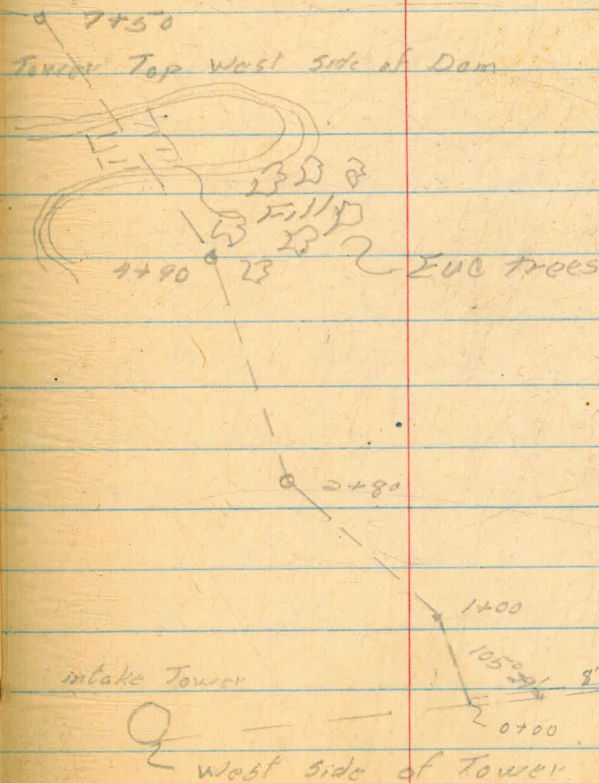 7+50
Tower Top West Side of Dam
Fill
4+90
Euc trees
2+80
1+00
105°
intake Tower
8'
0+00
West side of Tower